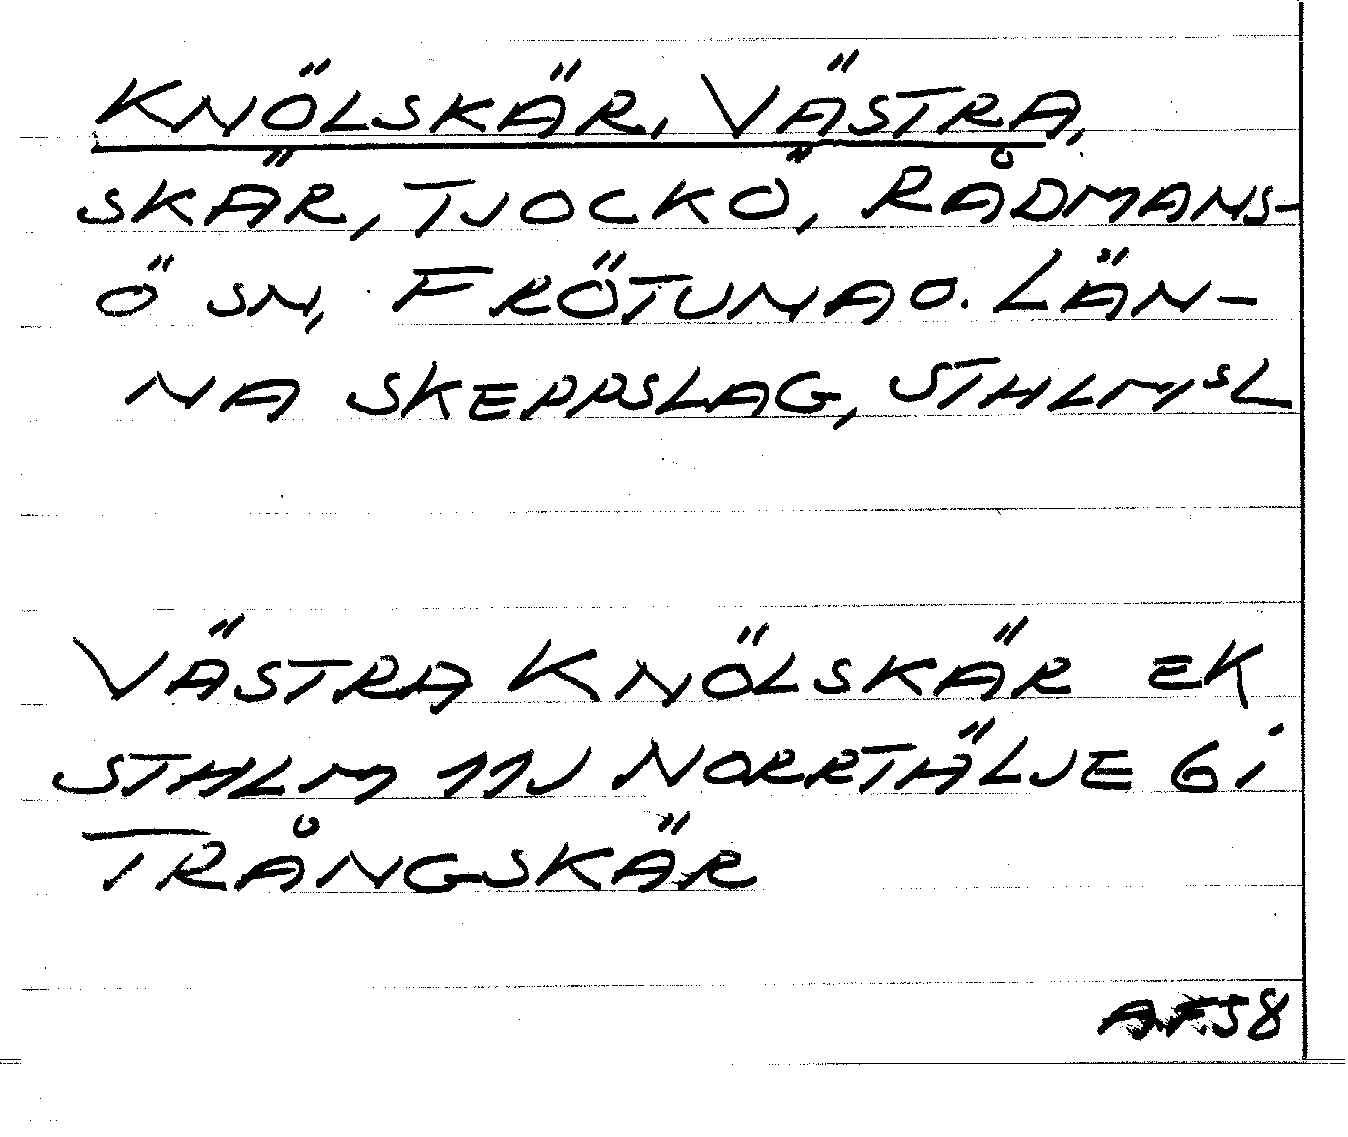 KNÖLSKÄR, VÄSTRA,
SKÄR, TJOCKÖ, RÅDMANS-
Ö SN, FRÖTUNA O. LÄN-
NA SKEPPSLAG, STHLMSL
VÄSTRA KNÖLSKÄR EK
STHLM 11J NORRTÄLJE 6i
TRÅNGSKÄR
AF58